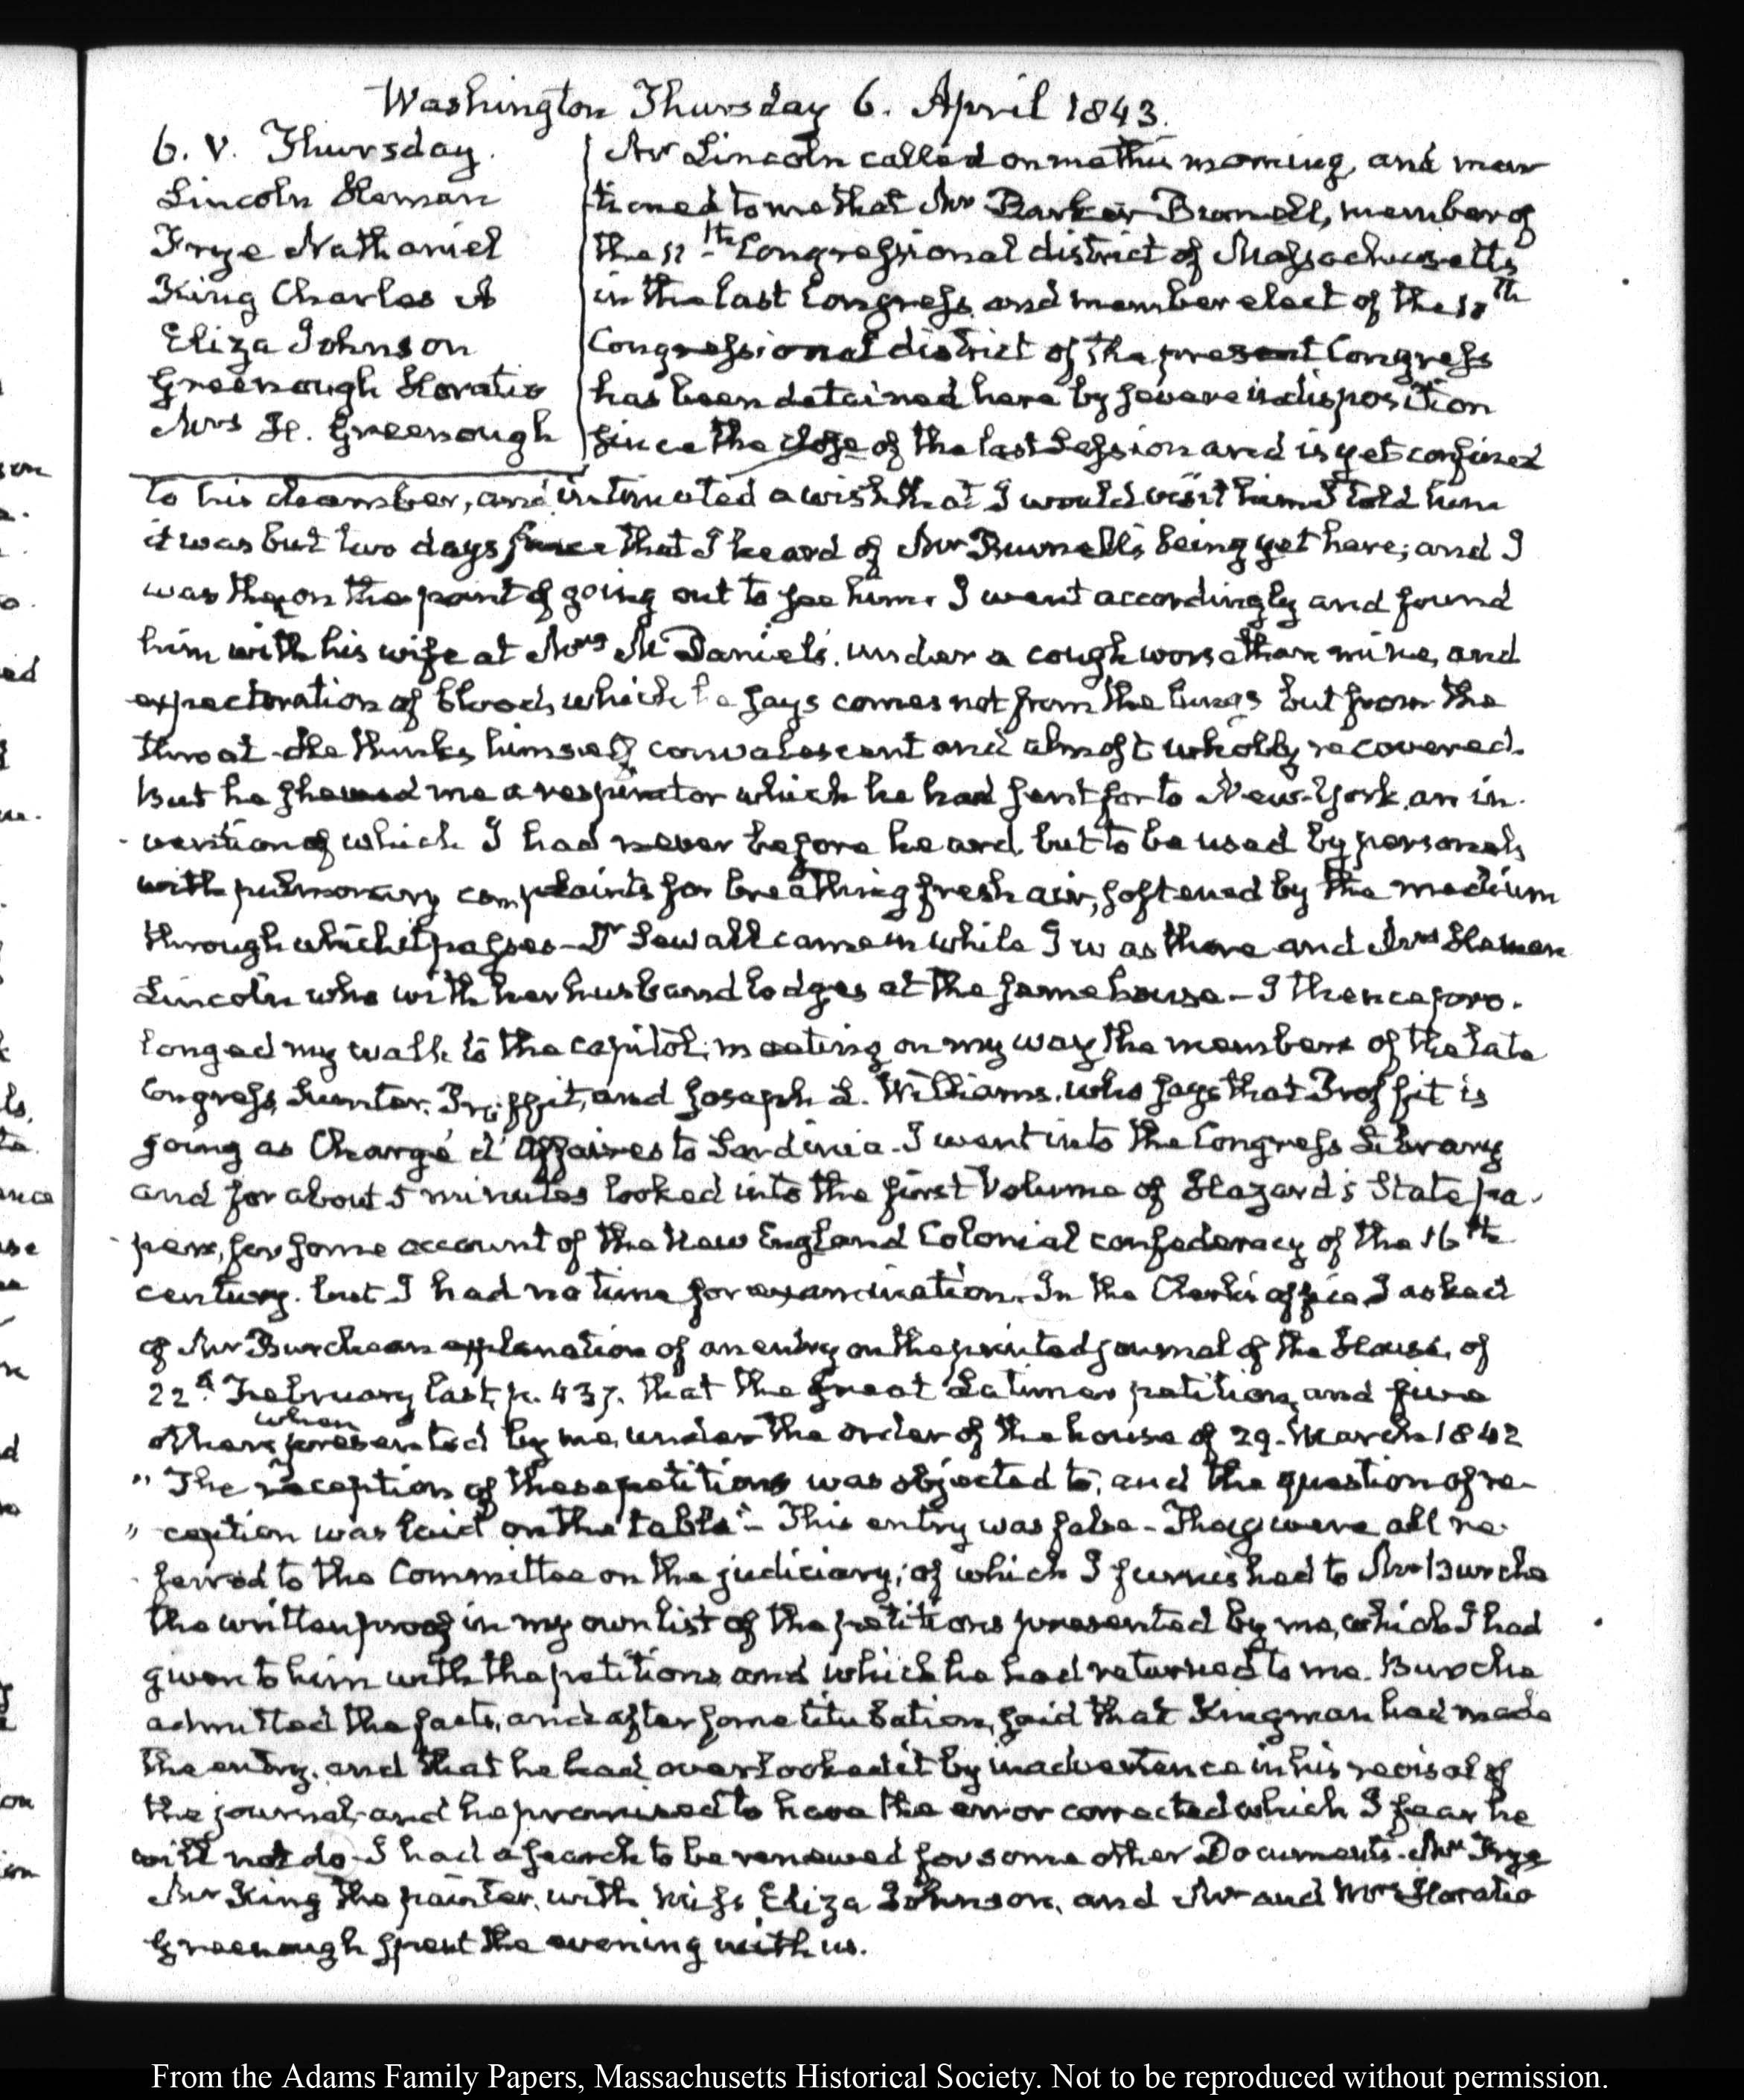 Washington Thursday 6. April 1843.
6. V. Thursday.
Lincoln Heman
Frye Nathaniel
King Charles B
Eliza Johnson
Greenough Horatio
Mrs H. Greenough
Mr Lincoln called on me this morning, and men
tioned to me that Mr Barker Burnell, member of
the 11th Congressional district of Massachusetts
in the last Congress and member elect of the 10th
Congressional district of the present Congress
has been detained here by severe indisposition
since the close of the last Session and is yet confined
to his chamber, and intimated a wish that I would visit him I told him
it was but two days since that I heard of Mr Burnell's being yet here; and I
was then on the point of going out to see him. I went accordingly and found
him with his wife at Mrs McDaniel's. under a cough worse than mine, and
expectoration of blood, which he says comes not from the lungs but from the
throat - He thinks himself convalescent and almost wholly recovered.
But he shewed me a respirator which he had sent for to New-York, an in-
vention of which I had never before heard, but to be used by persons
with pulmonary complaints for breathing fresh air, softened by the medium
through which it passes - Dr Sewall came in while I was there and Mrs Heman
Lincoln who with her husband lodges at the same house - I thence pro-
longed my walk to the capitol; meeting on my way the members of the late
Congress, Sumter, Proffit, and Joseph L. Williams, who says that Proffit is
going as Chargé d'Affaires to Sardinia - I went into the Congress Library
and for about 5 minutes looked into the first Volume of Hazard's State pa-
pers, for some account of the New England Colonial confederacy of the 16th
century. but I had no time for examination. In the Clerk's office, I asked
of Mr Burche an explanation of an entry on the printed journal of the House, of
22d February last, p. 437. that the great Latimer petition, and five
others, when presented by me, under the order of the house of 29. March 1842
" The reception of these petitions was objected to, and the question of re-
" ception was laid on the table" - This entry was false - They were all re-
ferred to the Committee on the judiciary; of which I furnished to Mr Burche
the written proof in my own list of the petitions presented by me, which I had
given to him with the petitions and which he had returned to me. Burche
admitted the facts, and after some titubation, said that Kingman had made
the entry, and that he had overlooked it by inadvertence in his revisal of
the journal, and he promised to have the error corrected which I fear he
will not do - I had a search to be renewed for some other Documents - Mr Frye
Mr King the painter, with Miss Eliza Johnson, and Mr and Mrs Horatio
Greenough spent the evening with us.
From the Adams Family Papers, Massachusetts Historical Society. Not to be reproduced without permission.